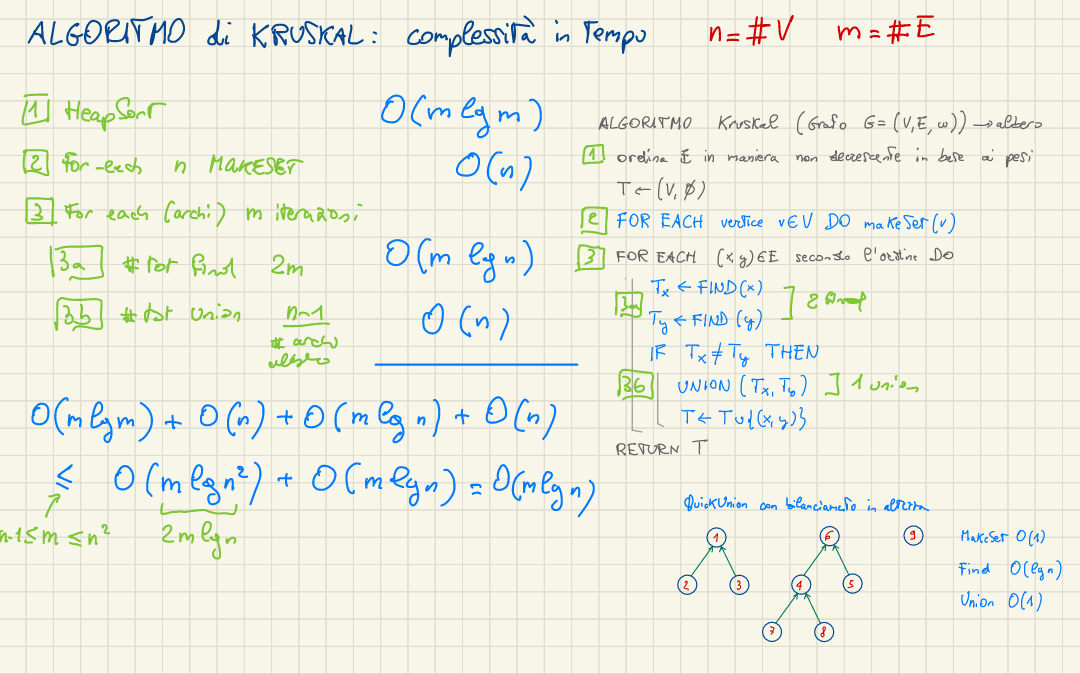 ALGORITMO di KRUSKAL: complessità in Tempo n = #V m = #E
1 HeapSort O(m lg m)
2 For-each n MAKESET O(n)
3 For each (archi) m iterazioni
3a # tot find 2m O(m lg n)
3b # tot union n-1 O(n)
# archi
albero
O(m lg m) + O(n) + O(m lg n) + O(n)
≤ O(m lg n²) + O(m lg n) = O(m lg n)
n-1 ≤ m ≤ n² 2m lg n
ALGORITMO Kruskal (Grafo G = (V, E, ω)) → albero
1 ordina E in maniera non decrescente in base ai pesi
T ← (V, ∅)
2 FOR EACH vertice v∈V DO makeSet(v)
3 FOR EACH (x,y)∈E secondo l'ordine DO
3a Tx ← FIND(x)
Ty ← FIND(y) ] 2 find
IF Tx ≠ Ty THEN
3b UNION (Tx, Ty) ] 1 union
T ← T∪{(x,y)}
RETURN T
QuickUnion con bilanciamento in altezza
1 6 9
2 3 4 5
7 8
MakeSet O(1)
Find O(lg n)
Union O(1)